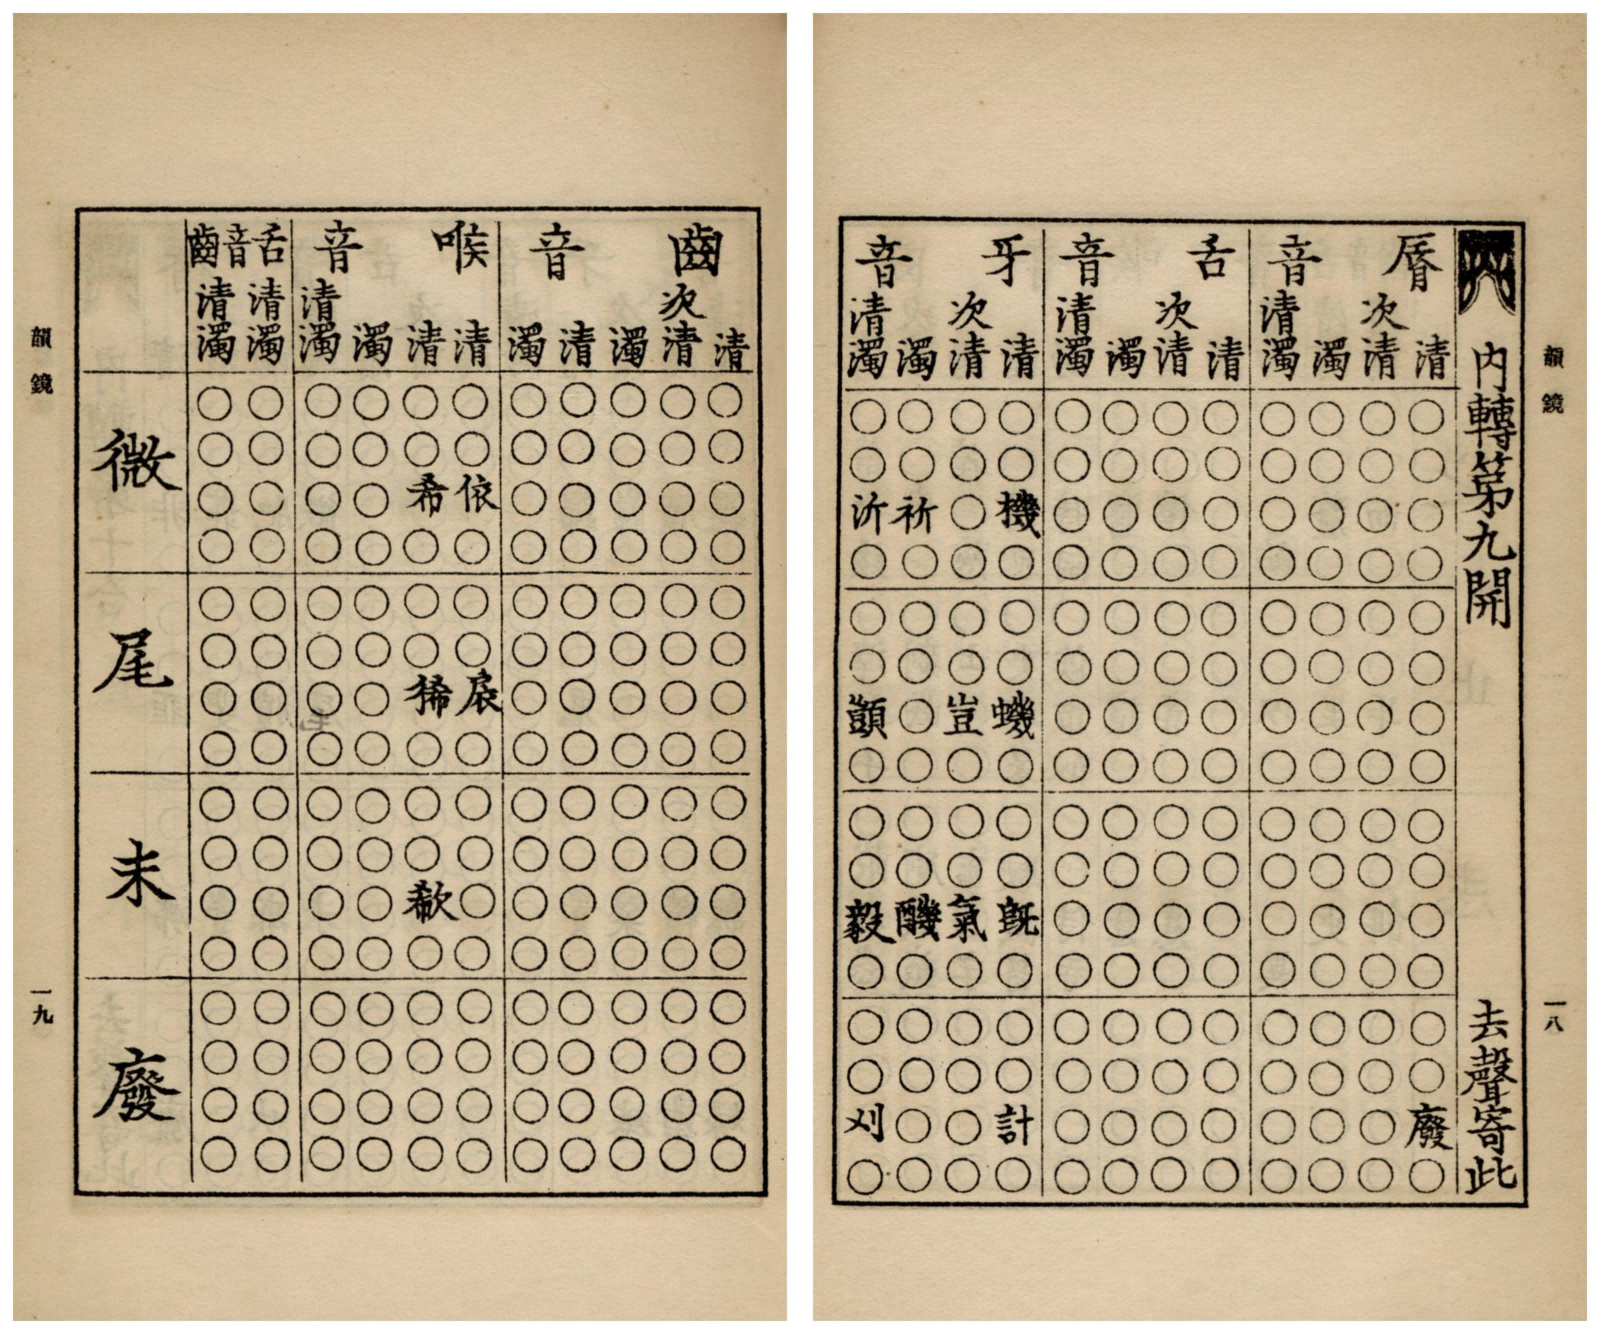 韻鏡
一八
内轉第九開
去聲寄此
脣音
清
次清
濁
清濁
舌音
清
次清
濁
清濁
牙音
清
次清
濁
清濁
○○○○○○○○○○○○
○○○○○○○○○○○○
○○○○○○○○機○祈沂
○○○○○○○○○○○○
○○○○○○○○○○○○
○○○○○○○○○○○○
○○○○○○○○蟣豈○顗
○○○○○○○○○○○○
○○○○○○○○○○○○
○○○○○○○○○○○○
○○○○○○○○旣氣醎毅
○○○○○○○○○○○○
○○○○○○○○○○○○
○○○○○○○○○○○○
廢○○○○○○○訐○○刈
○○○○○○○○○○○○
齒音
清
次清
濁
清
濁
喉音
清
清
濁
清濁
舌音齒
清濁
清濁
○○○○○○○○○○○
○○○○○○○○○○○
○○○○○依希○○○○
○○○○○○○○○○○
微
○○○○○○○○○○○
○○○○○○○○○○○
○○○○○扆狶○○○○
○○○○○○○○○○○
尾
○○○○○○○○○○○
○○○○○○○○○○○
○○○○○○欷○○○○
○○○○○○○○○○○
未
○○○○○○○○○○○
○○○○○○○○○○○
○○○○○○○○○○○
○○○○○○○○○○○
廢
韻鏡
一九